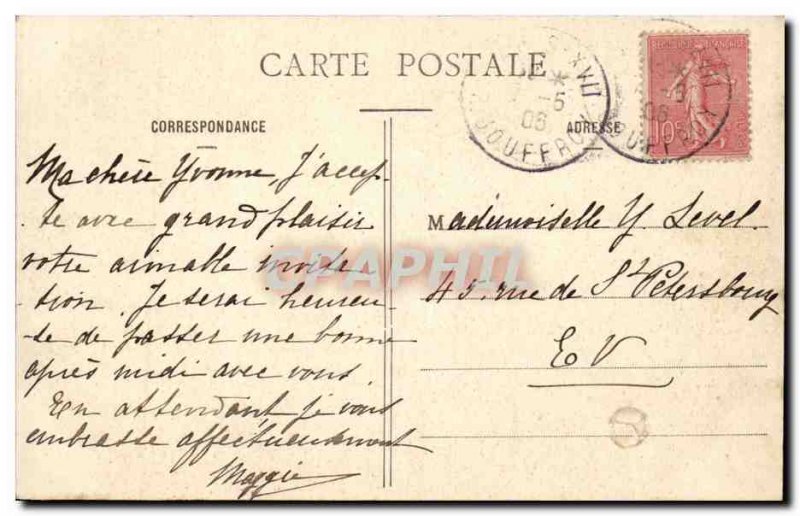 CARTE POSTALE
CORRESPONDANCE
ADRESSE
REPUBLIQUE FRANÇAISE
10
JOUFFROY
06
Ma chère Yvonne, J'accep-
te avec grand plaisir
votre aimable invita-
tion. Je serai heureu-
se de passer une bonne
après midi avec vous.
En attendant je vous
embrasse affectueusement
Maggie
Mademoiselle Y. Level.
45, rue de St Petersbourg
EV
CPAPHIL